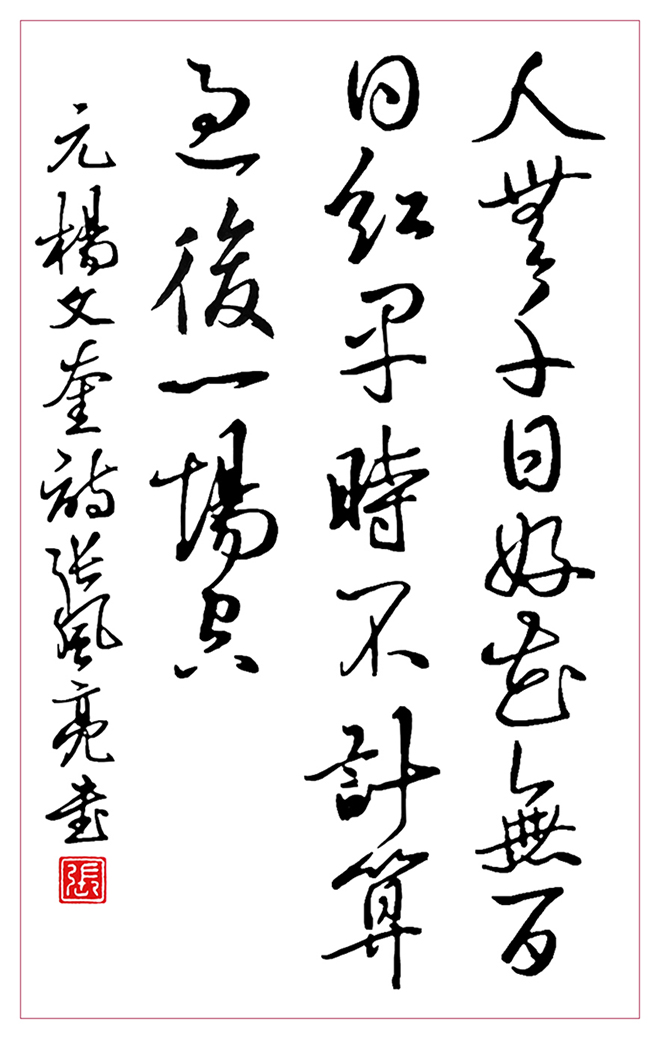 人無千日好花無百
日紅早時不計算
過後一場空
元楊文奎詩張風亮書
張